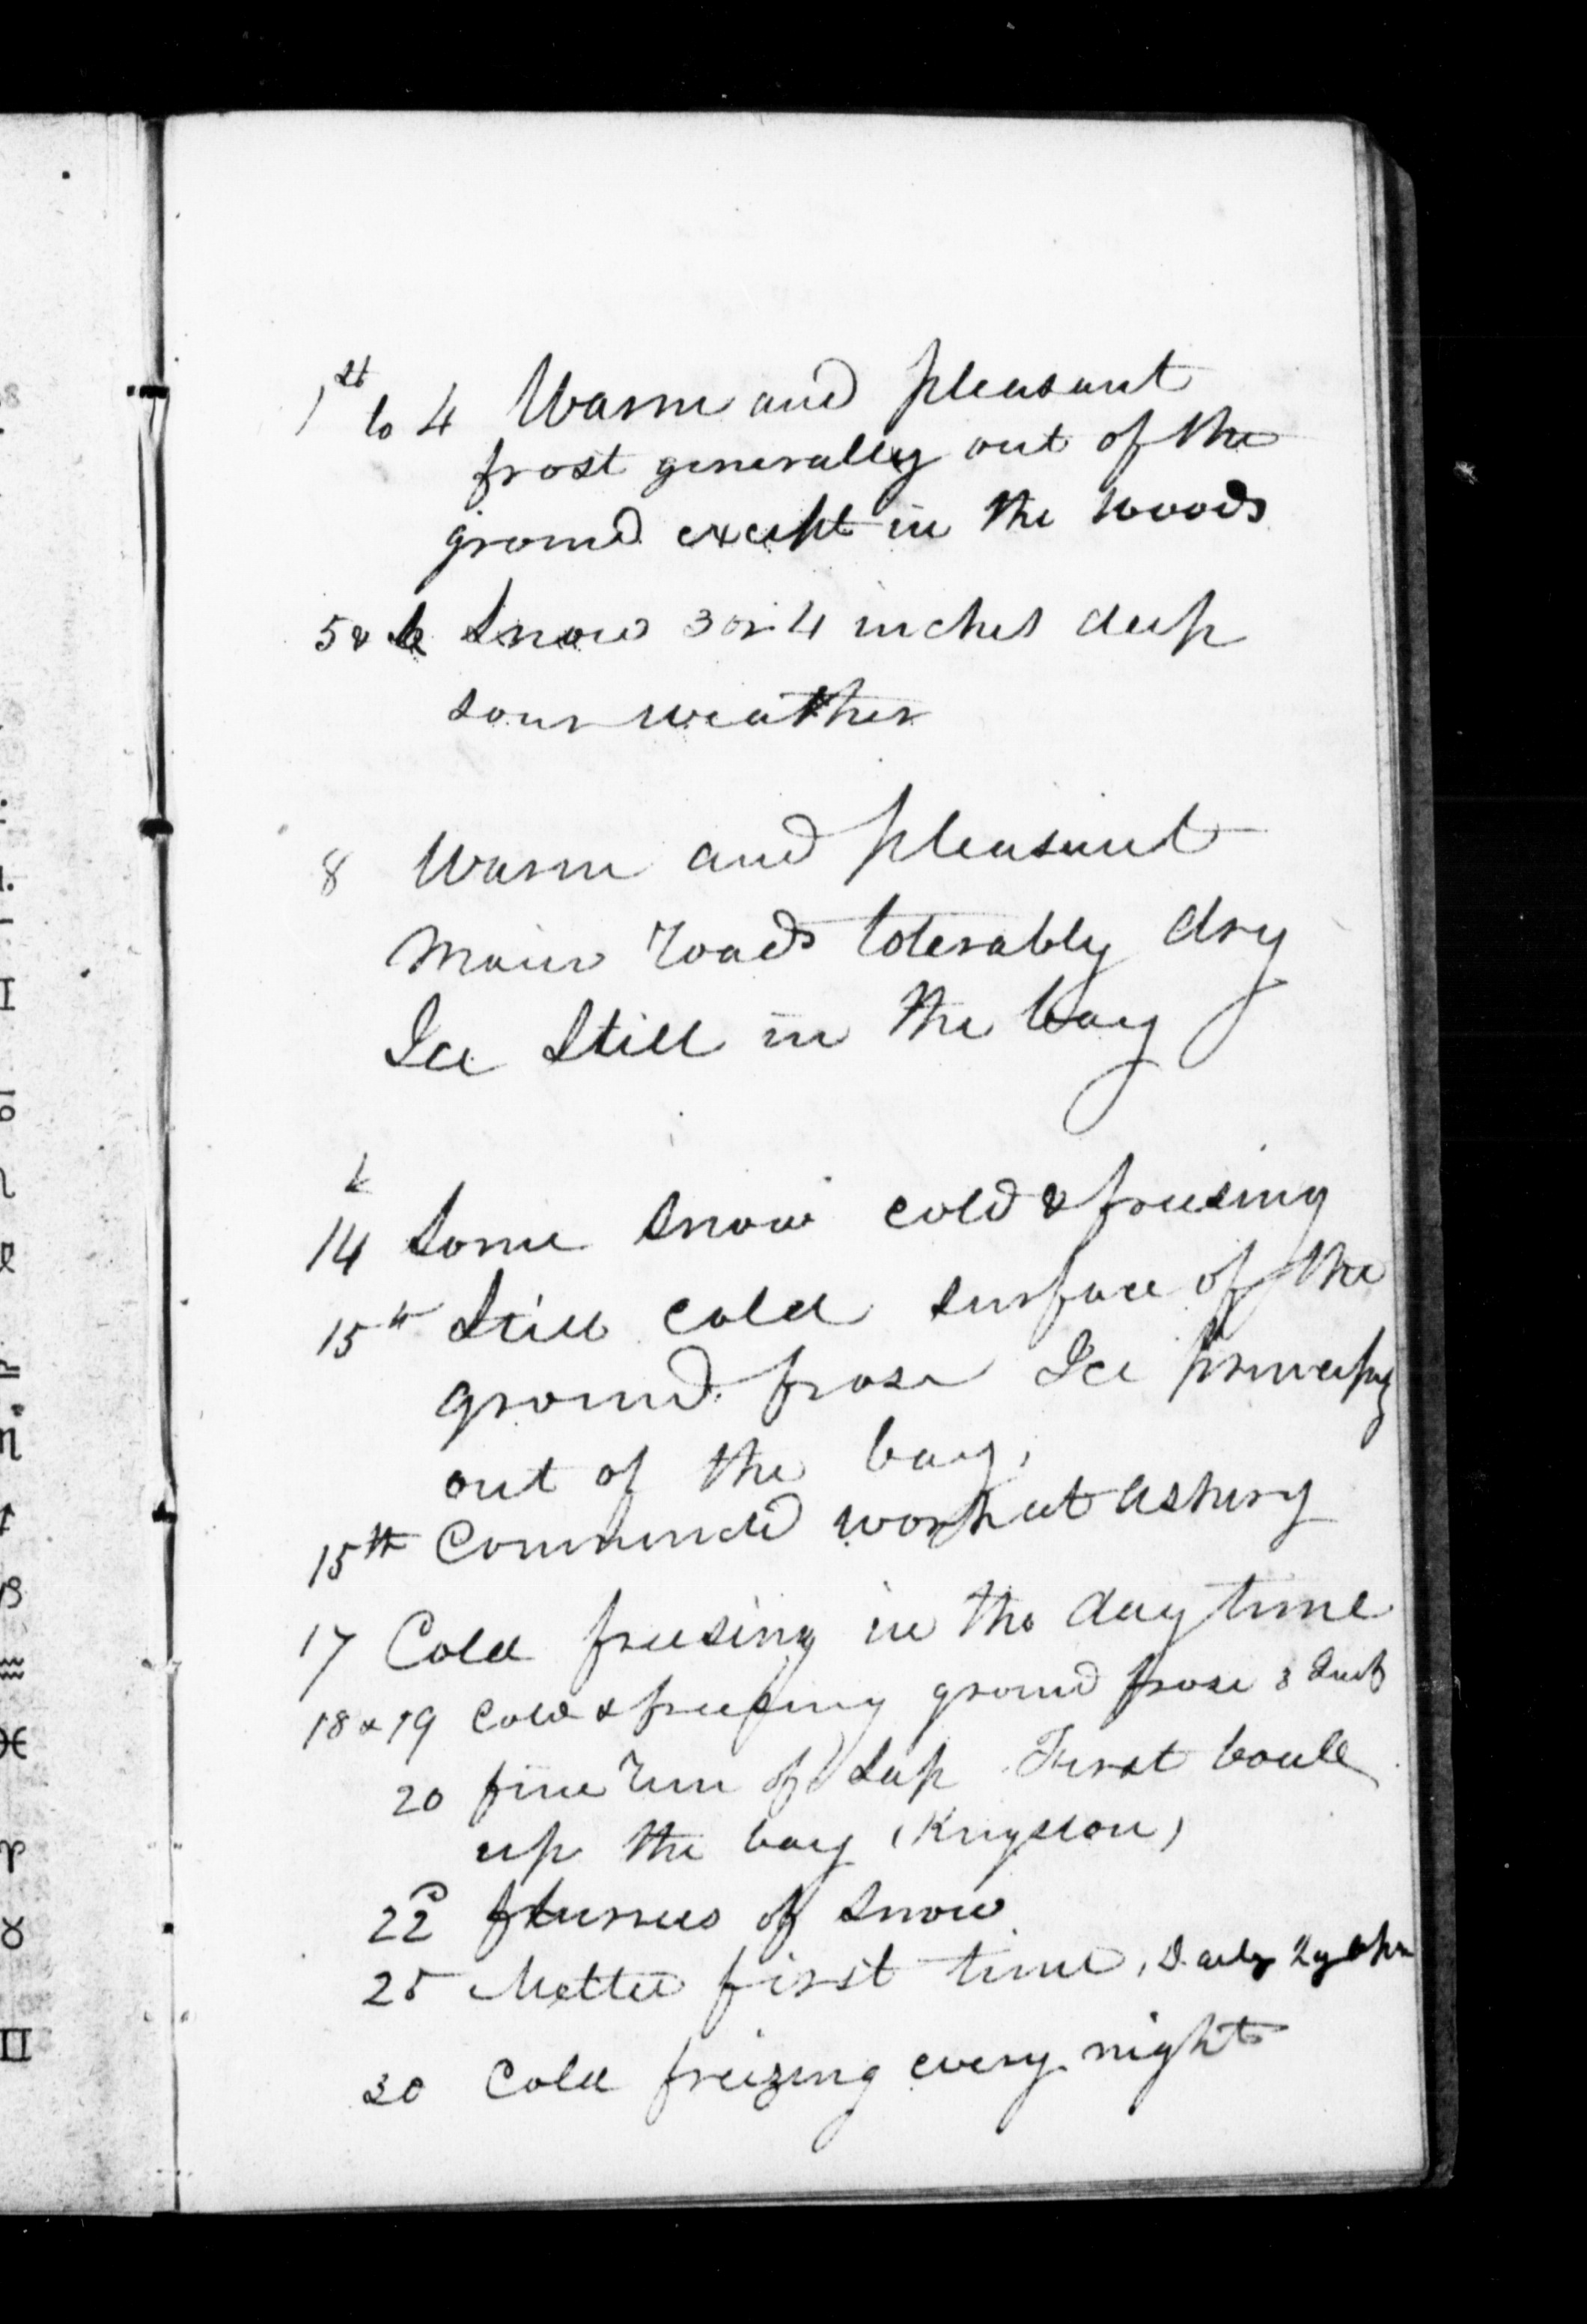 1st to 4 Warm and pleasant
frost generally out of the
ground except in the woods
5 & 6 Snow 3 or 4 inches deep
sour weather
8 Warm and pleasant
Main roads tolerably dry
Ice Still in the bay
14 Some Snow cold & freesing
15th Still cold surface of the
ground frose Ice
out of the bay,
15th Commencd work at Ashery
17 Cold freesing in the day time
18 & 19 Cold & freesing ground frose 3
20 fine run of Sap First boate
up the bay (Kingston)
22d flurries of Snow
25 first time,
30 Cold freizing every night